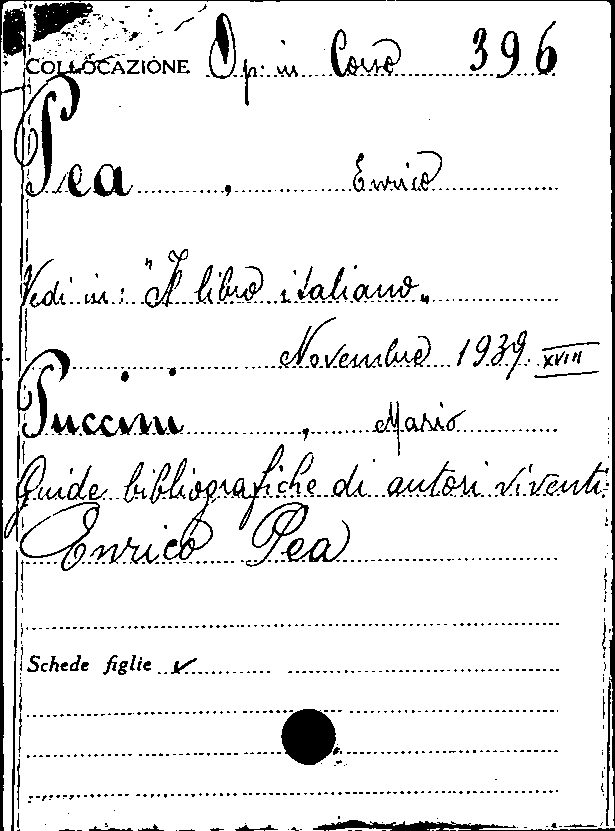 COLLOCAZIONE Op: in Corso 396
Pea , Enrico
Vedi in: "Il libro italiano„
Novembre 1939 XVIII
Puccini , Mario
Guide bibliografiche di autori viventi
Enrico Pea
Schede figlie ✓